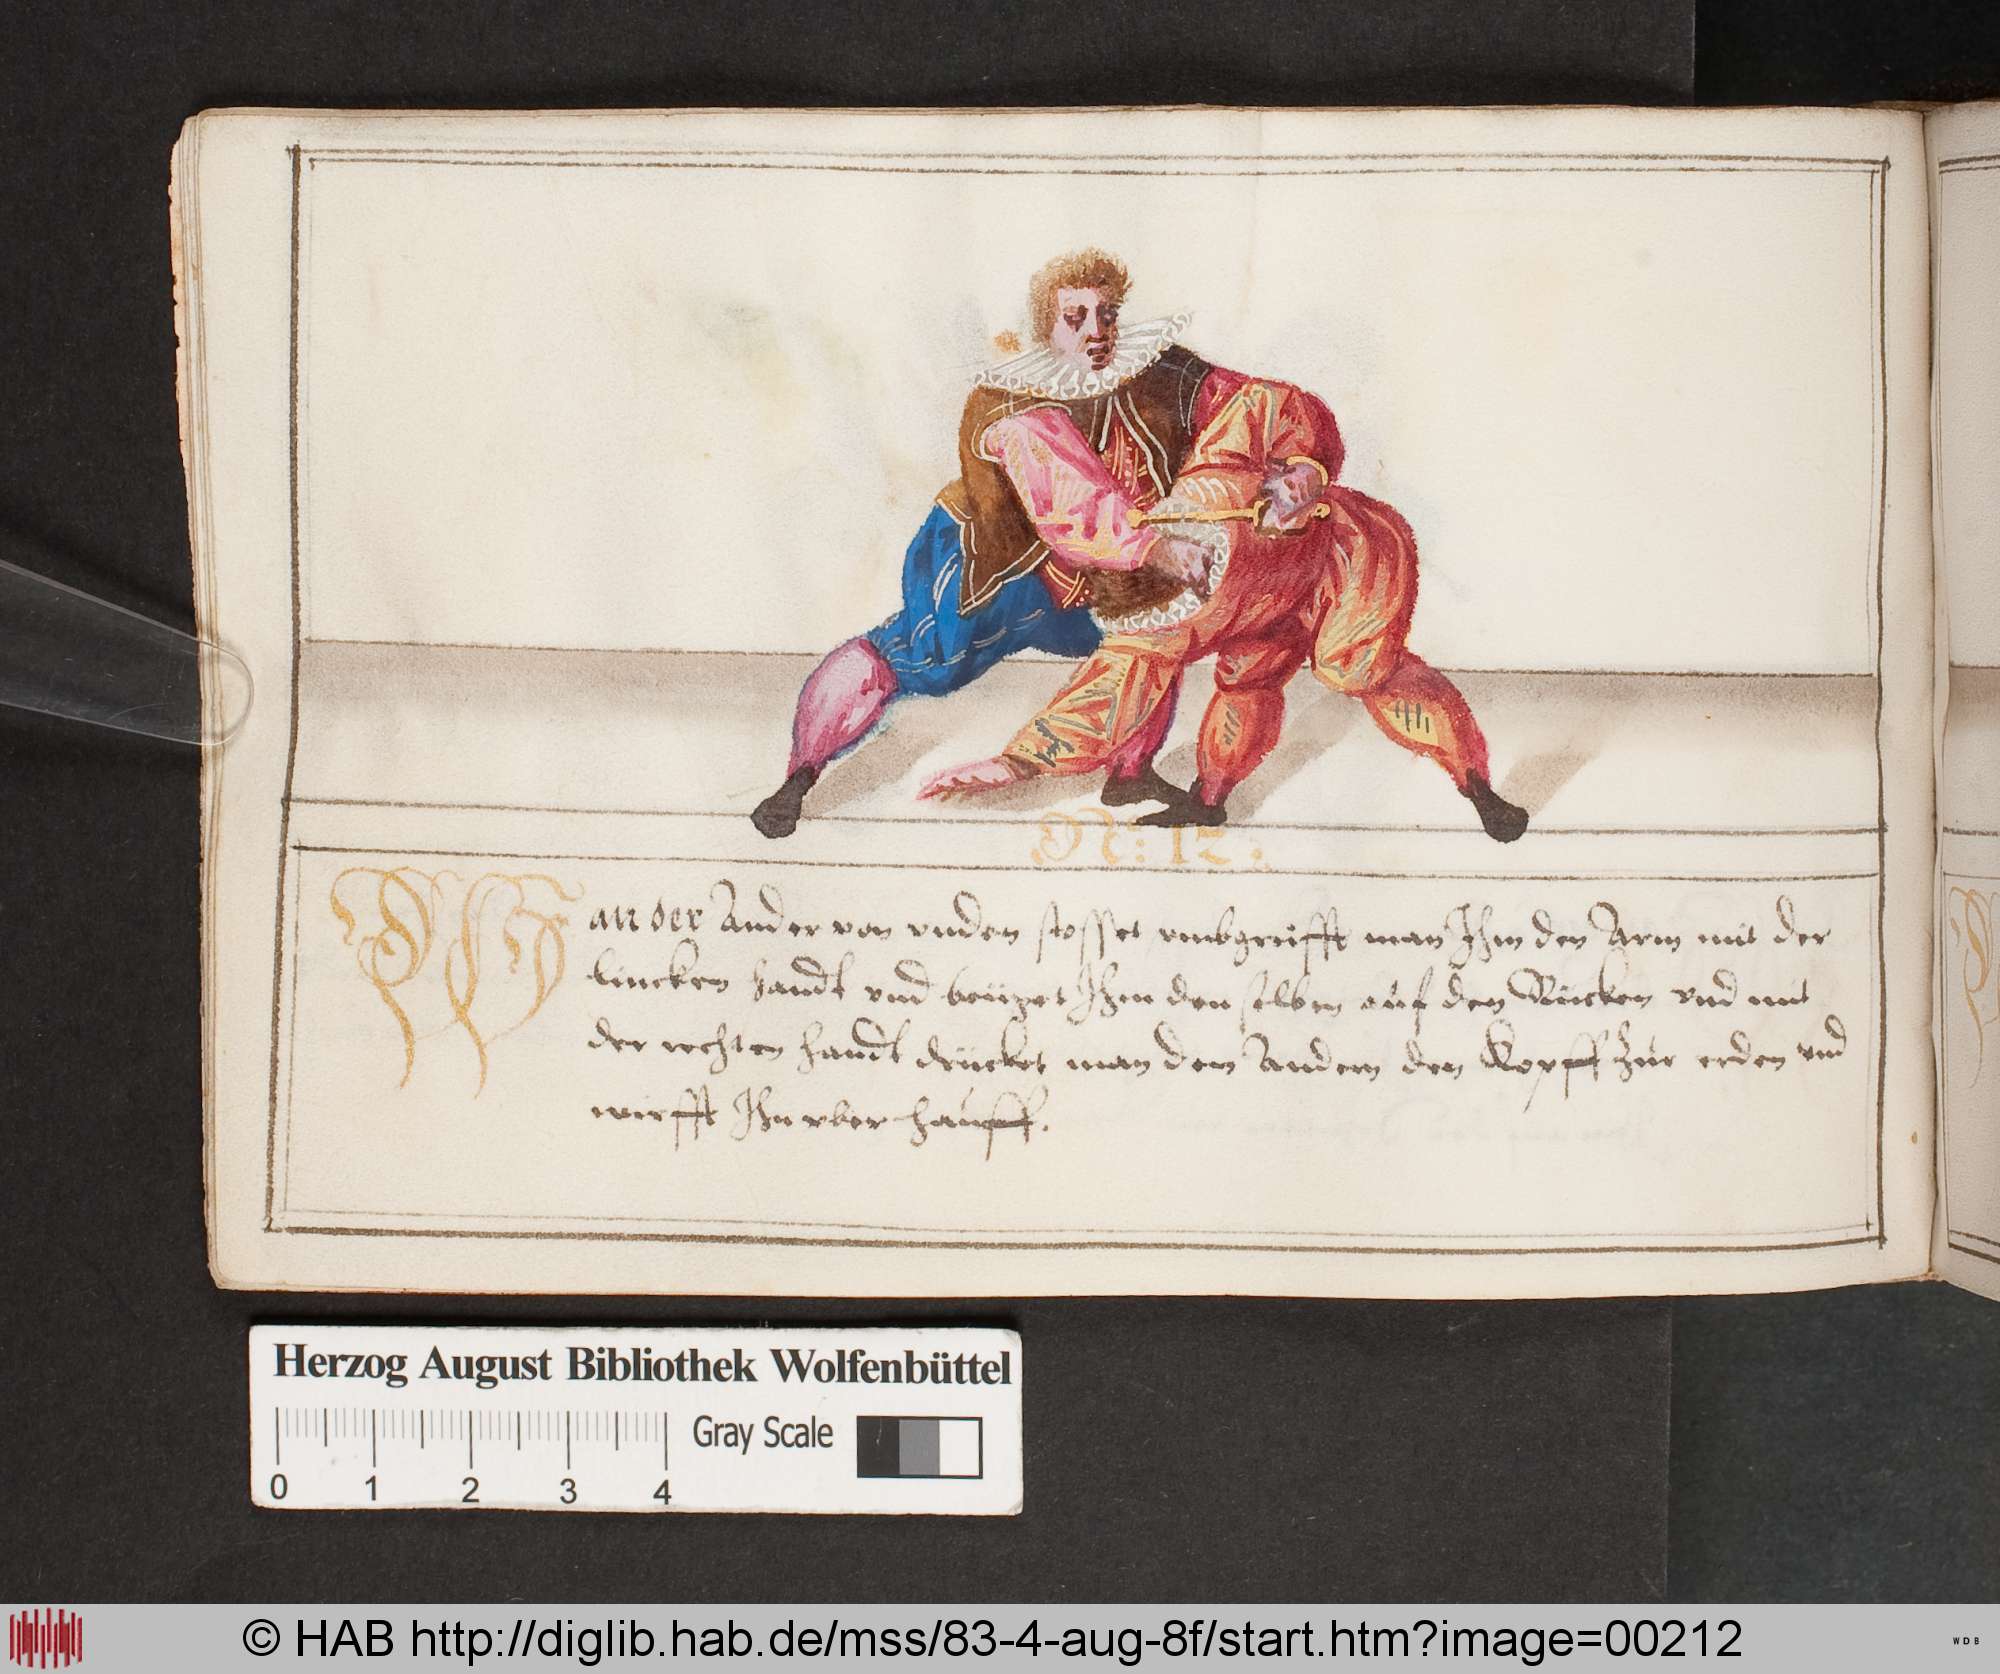 N: 12.
Wan der Ander von vnden stosset vmbgreifft man Ihm den Arm mit der
lincken handt vnd beüget Ihm den selben auf den Rücken vnd mit
der rechten handt drücket man dem Andern den Kopff zur erden vnd
wirfft Ihn vber hauff.
Herzog August Bibliothek Wolfenbüttel
Gray Scale
0 1 2 3 4
© HAB http://diglib.hab.de/mss/83-4-aug-8f/start.htm?image=00212
WDB